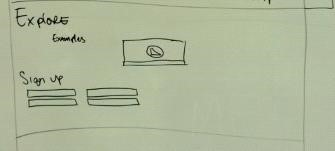 Explore
Examples
Sign up